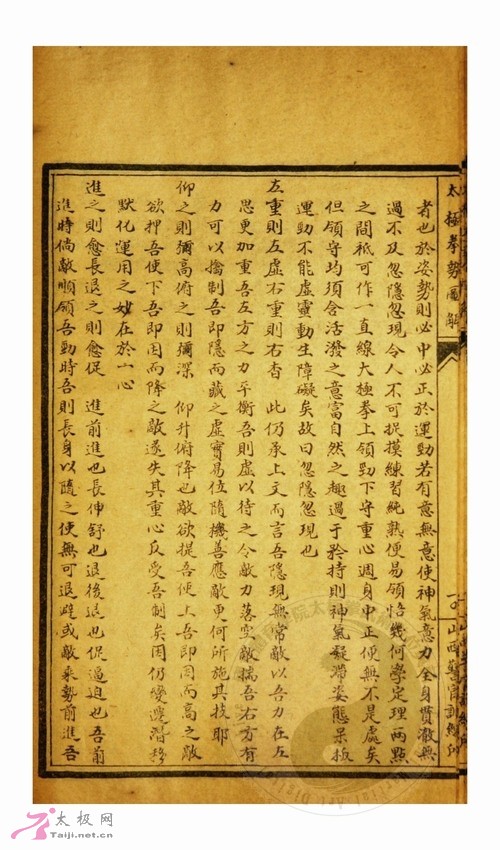 太極拳勢圖解
者也於姿勢則必中必正於運動若有意無意使神氣意力全身貫澈無
過不及忽隱忽現令人不可捉摸練習純熟便易領悟幾何學定理兩點
之間祗可作一直線大極拳上領勁下守重心週身中正便無不是處矣
但領守均須含活潑之意富自然之趣過于矜持則神氣凝滯姿態呆板
運動不能虛靈動生障礙矣故曰忽隱忽現也
左重則左虛右重則右杳 此仍承上文而言吾隱現無常敵以吾力在左
思更加重吾左方之力平衡吾則虛以待之令敵力落空敵揣吾右方有
力可以擒制吾即隱而藏之虛實易位隨機善應敵更何所施其技耶
仰之則彌高俯之則彌深 仰升俯降也敵欲提吾使上吾即因而高之敵
欲押吾使下吾即因而降之敵遂失其重心反受吾制矣因仍變遷潛移
默化運用之妙在於一心
進之則愈長退之則愈促 進前進也長伸舒也退後退也促逼迫也吾前
進時倘敵順領吾勁時吾則長身以隨之使無可退避或敵乘勢前進吾
太极网
Taiji.net.cn